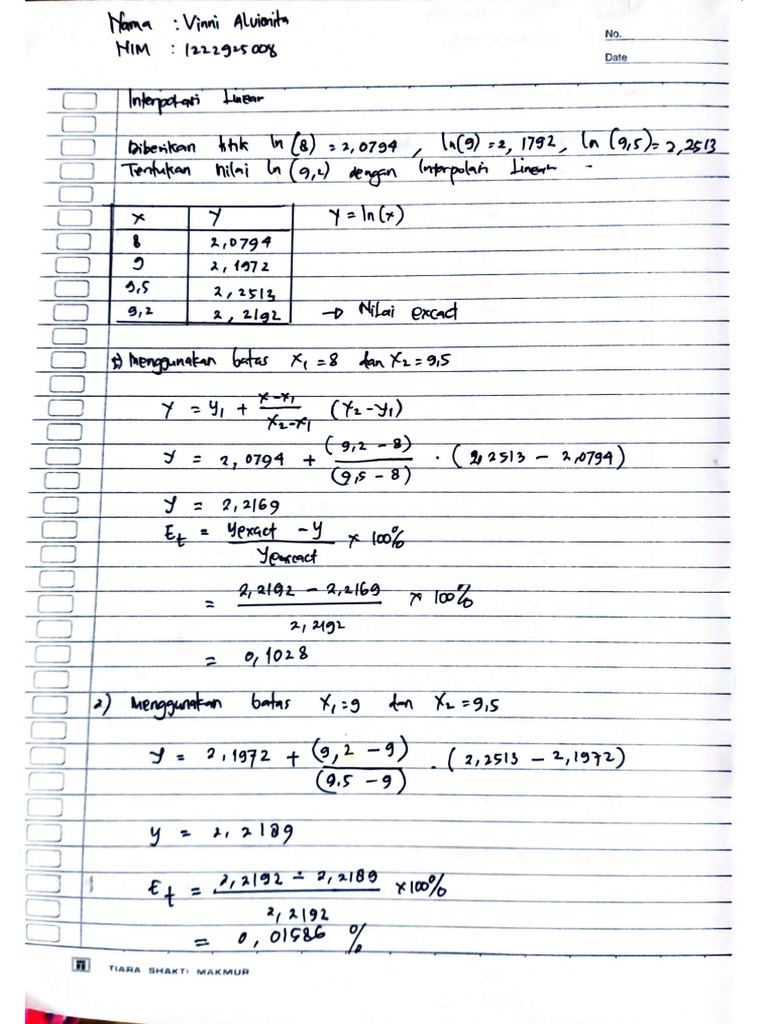 Nama : Vinni Alvionita
NIM : 1222925008
No.
Date
Interpolasi Linear
Diberikan titik ln (8) = 2,0794 , ln(9) = 2,1792, ln (9,5) = 2,2513
Tentukan nilai ln (9,2) dengan Interpolasi Linear
x y y = ln(x)
8 2,0794
9 2,1972
9,5 2,2513
9,2 2,2192 → Nilai excact
1) Menggunakan batas x₁ = 8 dan x₂ = 9,5
y = y₁ + (x-x₁)/(x₂-x₁) (y₂-y₁)
y = 2,0794 + (9,2 - 8)/(9,5 - 8) . (2,2513 - 2,0794)
y = 2,2169
Et = (yexact - y)/yexact × 100%
= (2,2192 - 2,2169)/2,2192 × 100%
= 0,1028
2) Menggunakan batas x₁ = 9 dan x₂ = 9,5
y = 2,1972 + (9,2 - 9)/(9.5 - 9) . (2,2513 - 2,1972)
y = 2,2189
Et = (2,2192 - 2,2189)/2,2192 ×100%
= 0,01586 %
TIARA SHAKTI MAKMUR